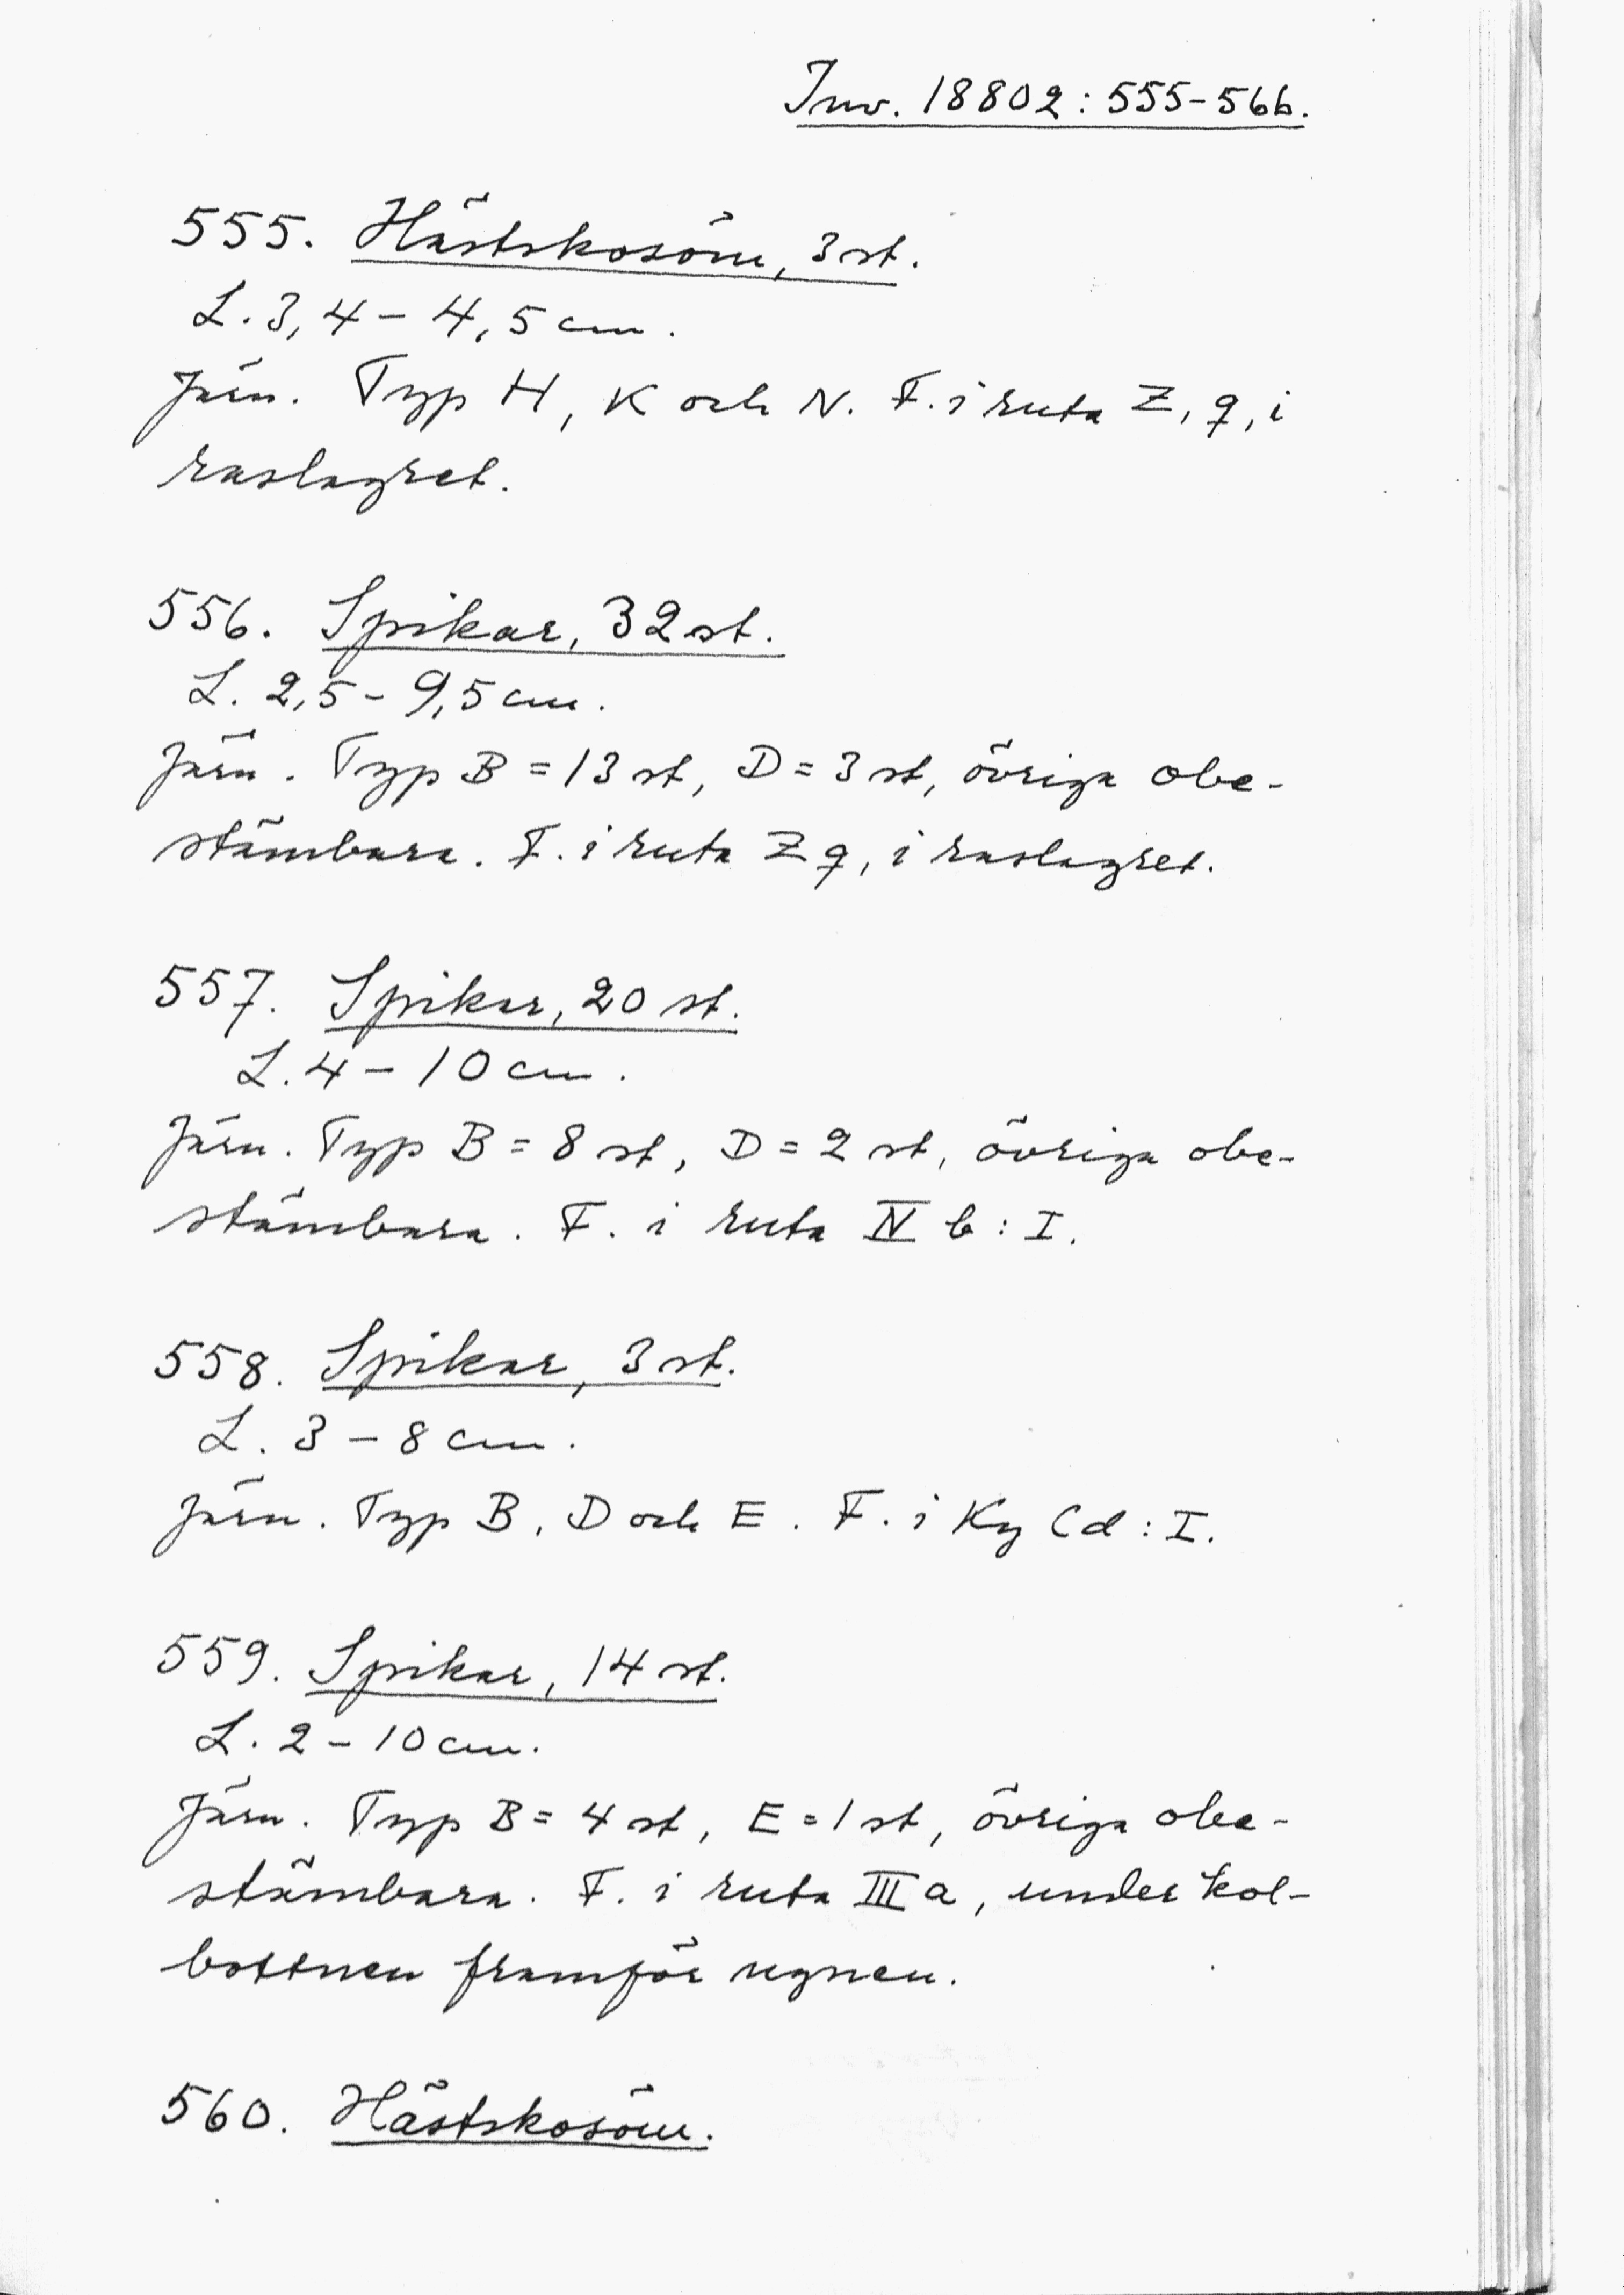 Inv. 18802:555-566.
555. Hästskosöm, 3 st.
L. 3,4 - 4,5 cm.
Järn. Typ H, K och N. F. i ruta Z, q, i
raslagret.
556. Spikar, 32 st.
L. 2,5 - 9,5 cm.
Järn. Typ B = 13 st, D = 3 st, övriga obe-
stämbara. F. i ruta Z q, i raslagret.
557. Spikar, 20 st.
L. 4 - 10 cm.
Järn. Typ B = 8 st, D = 2 st, övriga obe-
stämbara. F. i ruta IV b : I.
558. Spikar, 3 st.
L. 3 - 8 cm.
Järn. Typ B, D och E. F. i Ky Cd : I.
559. Spikar, 14 st.
L. 2 - 10 cm.
Järn. Typ B = 4 st, E = 1 st, övriga obe-
stämbara. F. i ruta III a, under kol-
bottnen framför ugnen.
560. Hästskosöm.